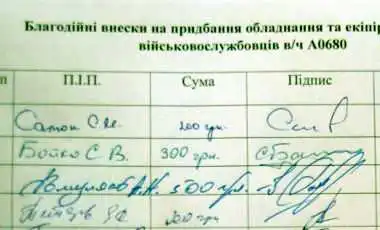 Благодійні внески на придбання обладнання та екіпір
військовослужбовців в/ч А0680
п П.І.П. Сума Підпис
С.М. 200 грн.
Бойко С. В. 300 грн.
А.К. 500 грн.
200 грн